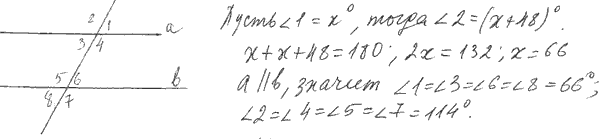 2 1
3 4 a
5 6
8 7 b
Пусть ∠1 = x°, тогда ∠2 = (x+48)°.
x+x+48=180; 2x=132; x=66
a∥b, значит ∠1=∠3=∠6=∠8=66°;
∠2=∠4=∠5=∠7=114°.